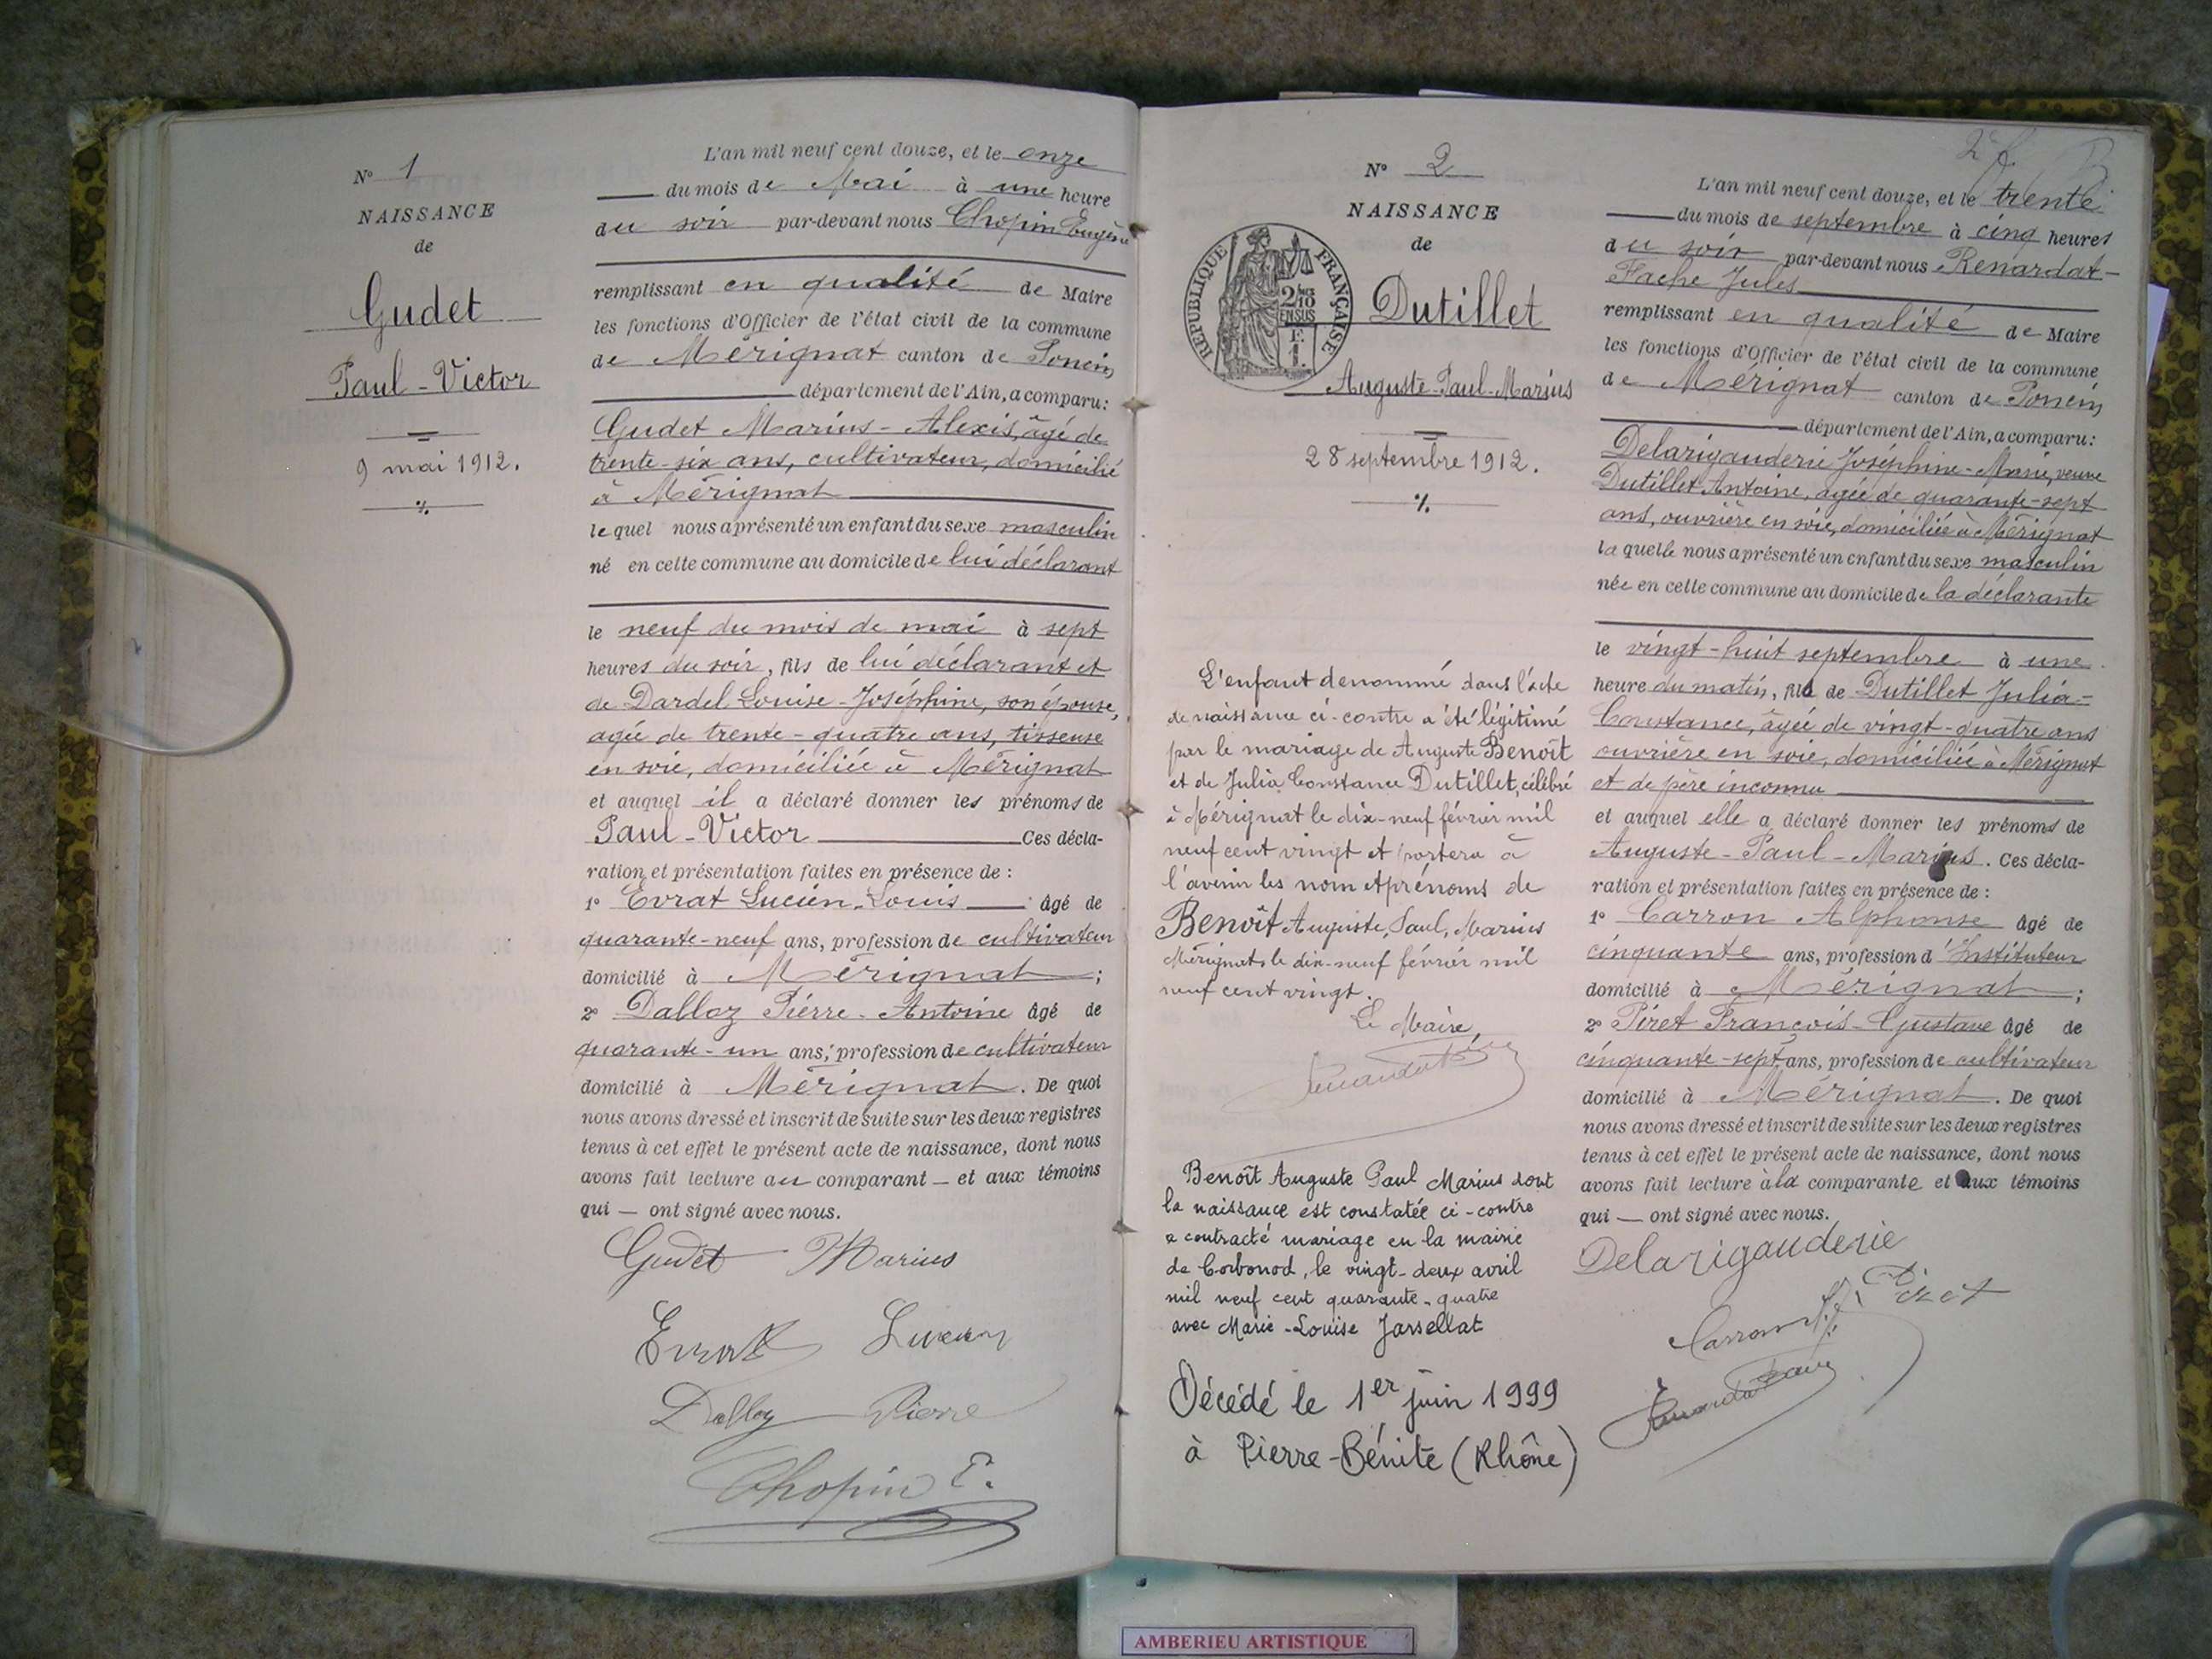 N° 1
NAISSANCE
de
Gudet
Paul-Victor
9 mai 1912.
L'an mil neuf cent douze, et le onze
du mois de Mai à une heure
du soir par-devant nous Chopin Eugène
remplissant en qualité de Maire
les fonctions d'Officier de l'état civil de la commune
de Mérignat canton de Poncin
département de l'Ain, a comparu:
Gudet Marius-Alexis, âgé de
trente-six ans, cultivateur, domicilié
à Mérignat
lequel nous a présenté un enfant du sexe masculin
né en cette commune au domicile de lui déclarant
le neuf du mois de mai à sept
heures du soir, fils de lui déclarant et
de Dardel Louise-Joséphine, son épouse,
agée de trente-quatre ans, tisseuse
en soie, domiciliée à Mérignat
et auquel il a déclaré donner les prénoms de
Paul-Victor Ces décla-
ration et présentation faites en présence de :
1° Evrat Lucien-Louis âgé de
quarante-neuf ans, profession de cultivateur
domicilié à Mérignat ;
2° Dalloz Pierre-Antoine âgé de
quarante-un ans, profession de cultivateur
domicilié à Mérignat. De quoi
nous avons dressé et inscrit de suite sur les deux registres
tenus à cet effet le présent acte de naissance, dont nous
avons fait lecture au comparant — et aux témoins
qui — ont signé avec nous.
Gudet Marius
Evrat Lucien
Dalloz Pierre
Chopin E.
N° 2
NAISSANCE
de
RÉPUBLIQUE FRANÇAISE
2/10 EN SUS
F. 1.
Dutillet
Auguste-Paul-Marius
28 septembre 1912.
L'enfant denommé dans l'acte
de naissance ci-contre a été légitimé
par le mariage de Auguste Benoît
et de Julia Constance Dutillet, célébré
à Mérignat le dix-neuf février mil
neuf cent vingt et portera à
l'avenir les nom et prénoms de
Benoît Auguste, Paul, Marius
Mérignat le dix-neuf février mil
neuf cent vingt.
Le Maire,
Benoît Auguste Paul Marius dont
la naissance est constatée ci-contre
a contracté mariage en la mairie
de Corbonod, le vingt-deux avril
mil neuf cent quarante-quatre
avec Marie-Louise Jassellat
Décédé le 1er juin 1999
à Pierre-Bénite (Rhône)
L'an mil neuf cent douze, et le trente
du mois de septembre à cinq heures
du soir par-devant nous Renardat-
Fache Jules
remplissant en qualité de Maire
les fonctions d'Officier de l'état civil de la commune
de Mérignat canton de Poncin
département de l'Ain, a comparu:
Delarigauderie Joséphine-Marie, veuve
Dutillet Antoine, agée de quarante-sept
ans, ouvrière en soie, domiciliée à Mérignat
laquelle nous a présenté un enfant du sexe masculin
née en cette commune au domicile de la déclarante
le vingt-huit septembre à une
heure du matin, fils de Dutillet Julia-
Constance, âgée de vingt-quatre ans
ouvrière en soie, domiciliée à Mérignat
et de père inconnu
et auquel elle a déclaré donner les prénoms de
Auguste-Paul-Marius. Ces décla-
ration et présentation faites en présence de :
1° Carron Alphonse âgé de
cinquante ans, profession d'Instituteur
domicilié à Mérignat ;
2° Piret François-Gustave âgé de
cinquante-sept ans, profession de cultivateur
domicilié à Mérignat. De quoi
nous avons dressé et inscrit de suite sur les deux registres
tenus à cet effet le présent acte de naissance, dont nous
avons fait lecture à la comparante et aux témoins
qui — ont signé avec nous.
Delarigauderie
Piret
Carron
AMBERIEU ARTISTIQUE